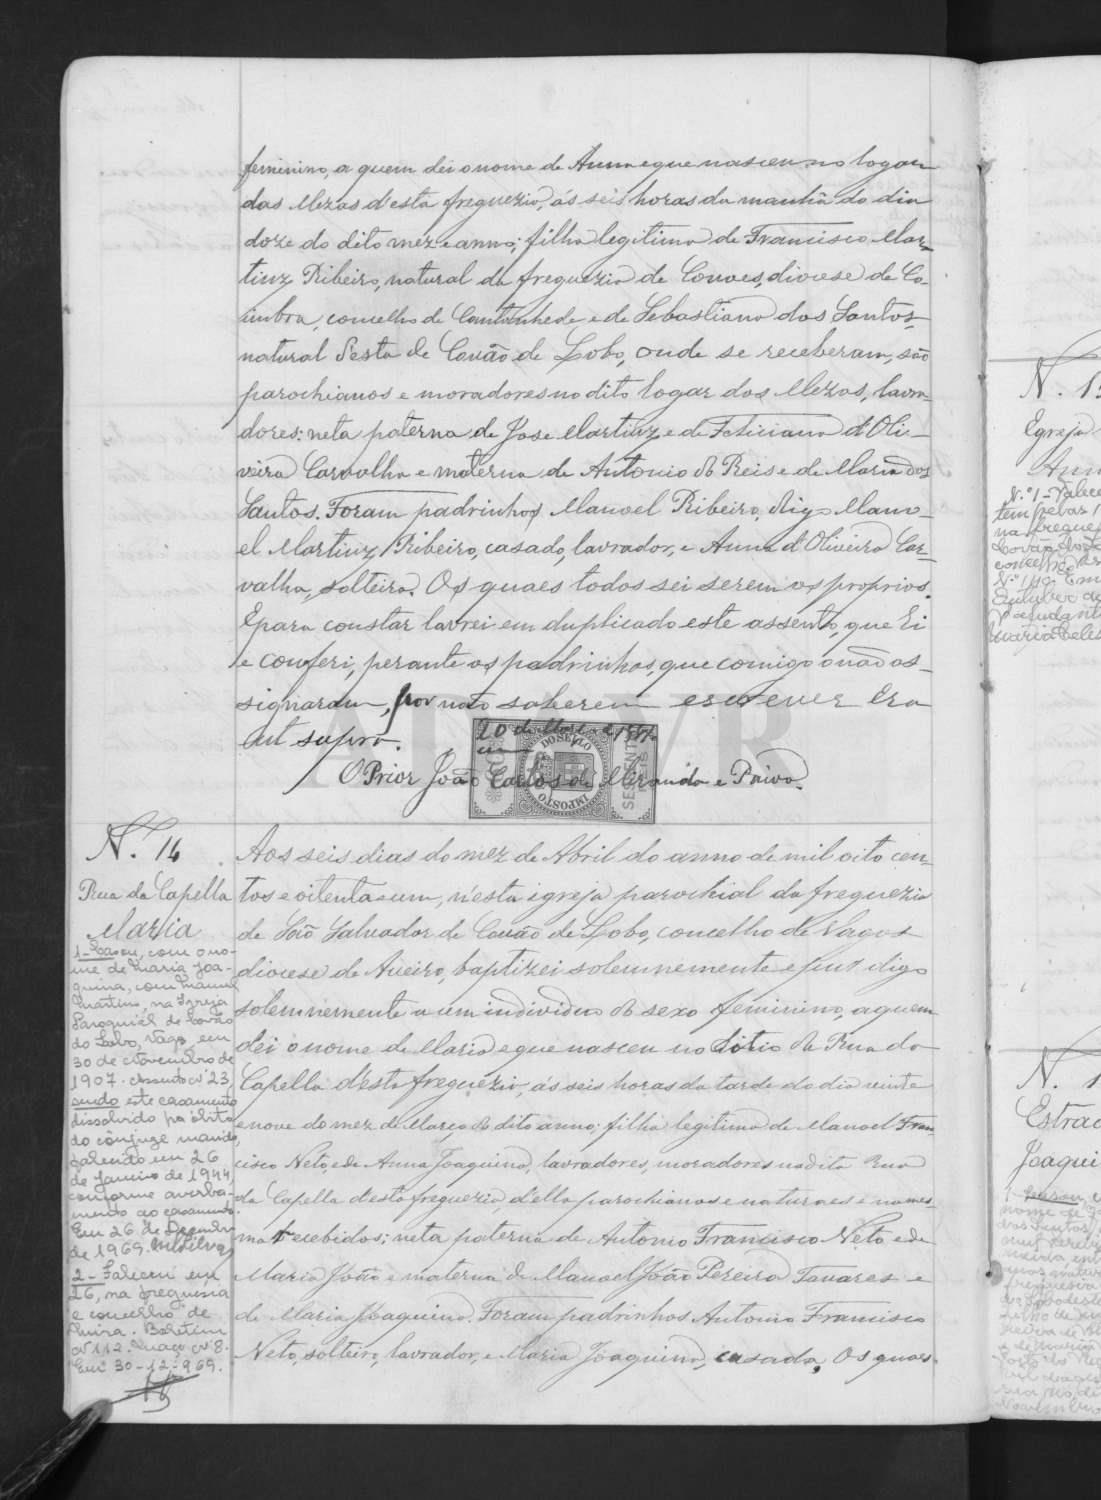 feminino, a quem dei o nome de Anna e que nasceu no logar
das Mezas d'esta freguezia, ás seis horas da manhã do dia
doze do dito mez e anno; filha legitima de Francisco Mar-
tinz Ribeiro, natural da freguezia de Covoes, diocese de Co-
imbra, concelho de Cantanhede e de Sebastiana dos Santos,
natural d'esta de Covão de Lobo, onde se receberam, são
parochianos e moradores no dito logar das Mezas, lavra-
dores: neta paterna de Jose Martinz e de Feliciana d'Oli-
veira Carvalha e materna de Antonio dos Reis e de Maria dos
Santos. Foram padrinhos Manoel Ribeiro, digo Mano-
el Martinz Ribeiro, casado, lavrador, e Anna d'Oliveira Car-
valha, solteira. Os quaes todos sei serem os proprios.
E para constar lavrei em duplicado este assento, que li
e conferi, perante os padrinhos, que comigo o não as-
signaram, por não saberem escrever Era
ut supra.
O Prior João Carlos de Miranda e Paiva.
DO SELLO
IMPOSTO
N. 14
Rua da Capella
Maria
1 - Casou, com o no-
me de Maria Joa-
quina, com Manuel
Martins, na Igreja
Paroquial de Covão
do Lobo, Vagos, em
30 de Novembro de
1907. Assento nº 23,
sendo este casamento
dissolvido por óbito
do cônjuge marido,
falecido em 26
de Janeiro de 1944,
conforme averba-
mento ao casamento.
Em 26 de Dezembro
de 1969.
2 - Faleceu em
26, na freguesia
e concelho de
Mira. Boletim
nº 112. Maço nº 8.
Em 30-12-969.
Aos seis dias do mez de Abril do anno de mil oito cen-
tos e oitenta e um, n'esta igreja parochial da freguezia
de São Salvador de Covão de Lobo, concelho de Vagos
diocese de Aveiro, baptizei solemnemente e puz digo
solemnemente a um individuo do sexo feminino, a quem
dei o nome de Maria e que nasceu no sitio da Rua da
Capella d'esta freguezia, ás seis horas da tarde do dia vinte
e nove do mez de Março do dito anno; filha legitima de Manoel Fran-
cisco Neto, e de Anna Joaquina, lavradores, moradores na dita Rua
da Capella d'esta freguezia, d'ella parochianos e naturaes e na mes-
ma recebidos; neta paterna de Antonio Francisco Neto e de
Maria João e materna de Manoel João Pereira Tavares e
de Maria Joaquina. Foram padrinhos Antonio Francisco
Neto, solteiro, lavrador, e Maria Joaquina, casada, Os quaes
Egreja
N. 1
Estrad
Joaqui